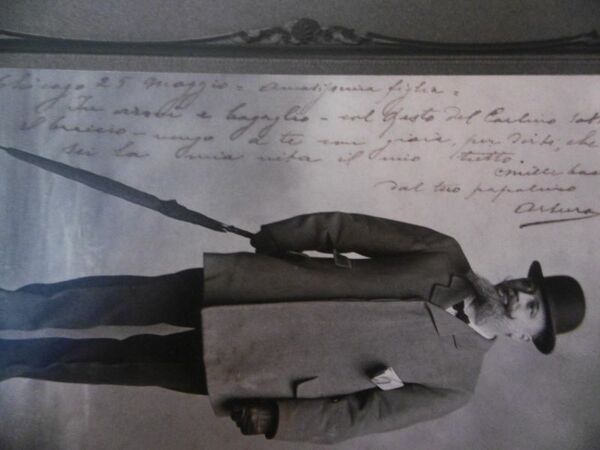 Chicago 25 Maggio = Amatissima figlia =
In armi e bagaglio - col Resto del Carlino sotto
il braccio - vengo a te con gioia, per dirti, che
sei la mia vita il mio tutto.
Mille baci
dal tuo papalino
Arturo